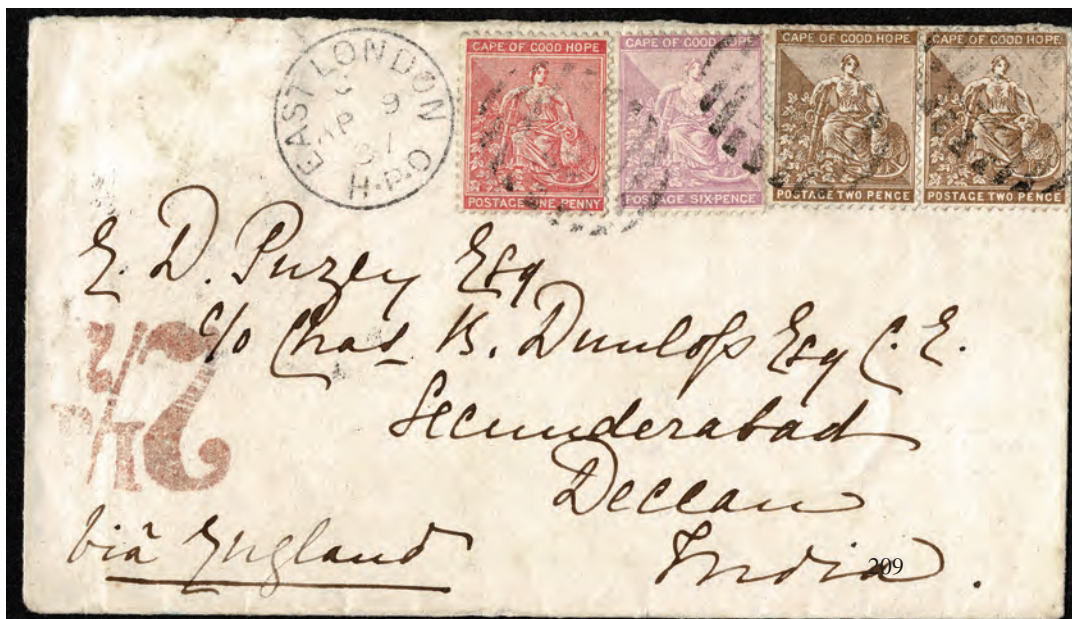 EAST LONDON
AP 9
81
H.P.O
CAPE OF GOOD HOPE
POSTAGE ONE PENNY
CAPE OF GOOD HOPE
POSTAGE SIX-PENCE
CAPE OF GOOD HOPE
POSTAGE TWO PENCE
CAPE OF GOOD HOPE
POSTAGE TWO PENCE
E. D. Puzey Esq
c/o Chas B. Dunlop Esq C. E.
Secunderabad
Deccan
India.
via England
209